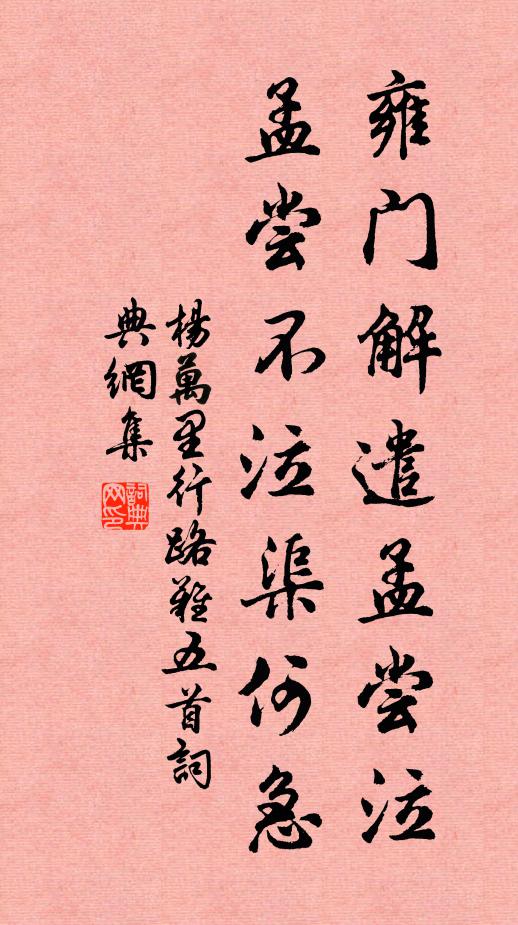 雍门解遣孟尝泣
孟尝不泣渠何急
楊萬里行路難五首詞
典網集
詞典网印